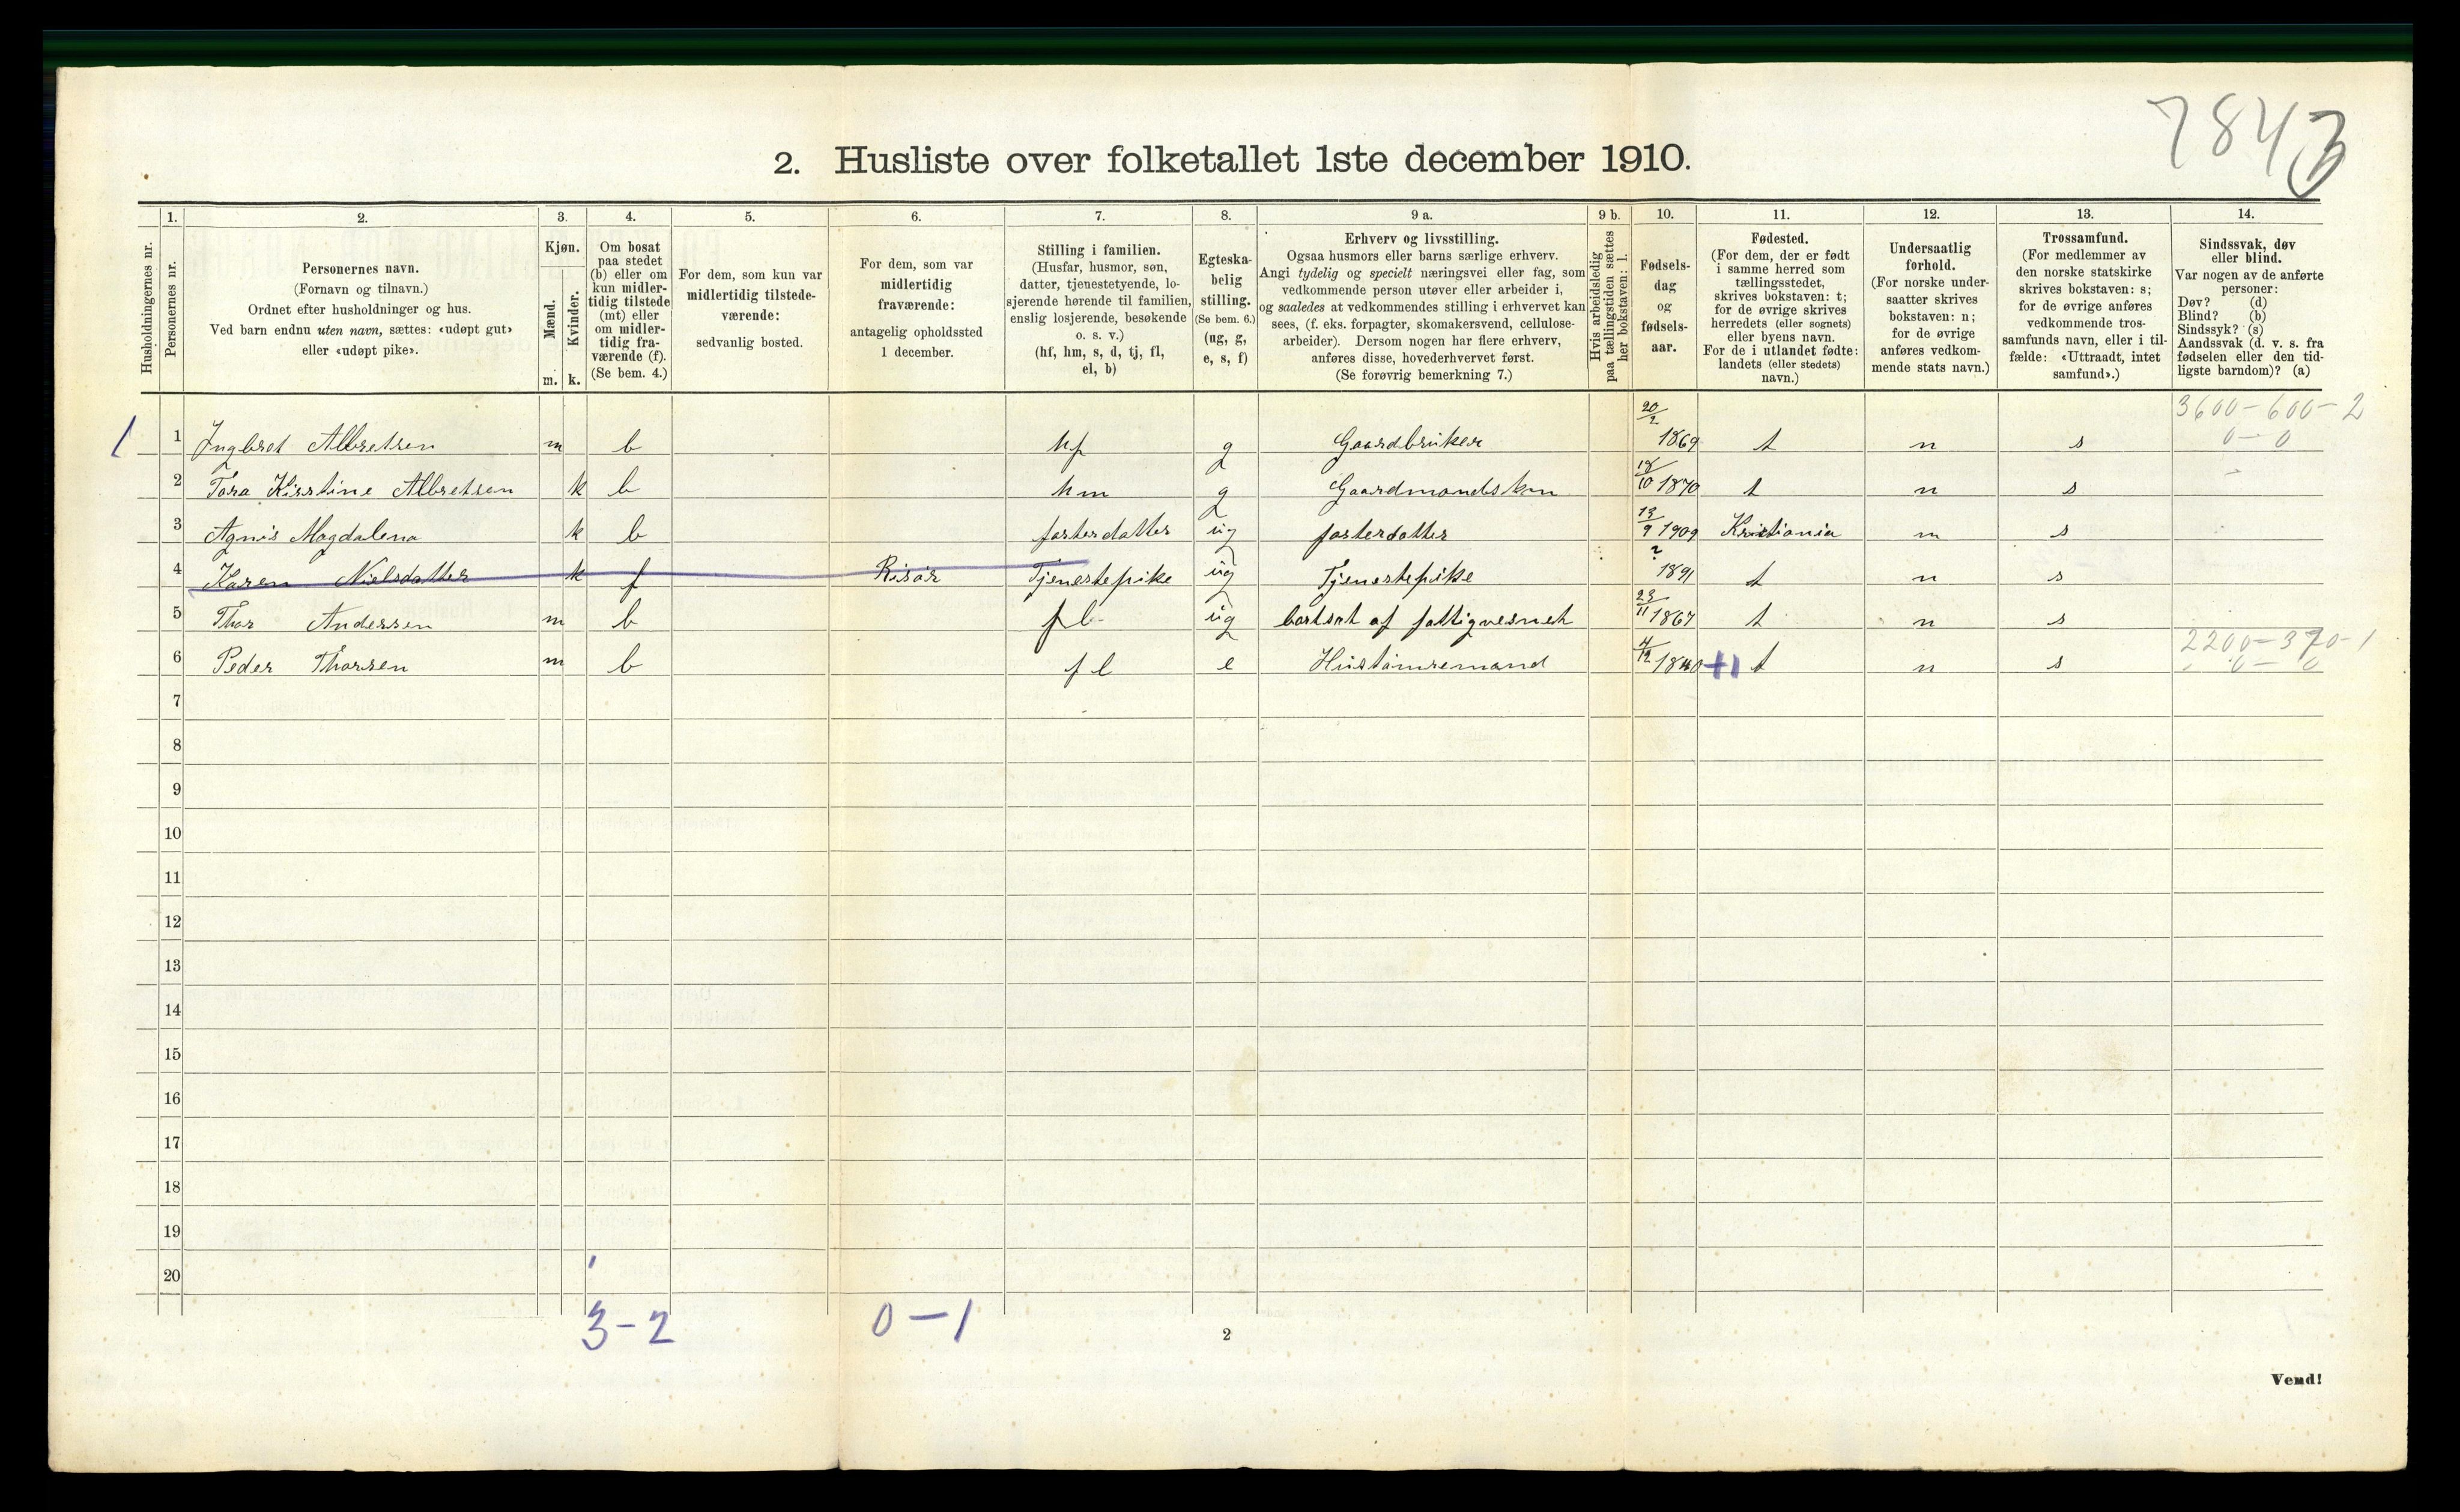 7843
2. Husliste over folketallet 1ste december 1910.
1. 2. 3. 4. 5. 6. 7. 8. 9 a. 9 b. 10. 11. 12. 13. 14.
Husholdningernes nr.
Personernes nr.
Personernes navn.
(Fornavn og tilnavn.)
Ordnet efter husholdninger og hus.
Ved barn endnu uten navn, sættes: «udøpt gut»
eller «udøpt pike».
Kjøn.
Mænd.
Kvinder.
m. k.
Om bosat
paa stedet
(b) eller om
kun midler-
tidig tilstede
(mt) eller
om midler-
tidig fra-
værende (f).
(Se bem. 4.)
For dem, som kun var
midlertidig tilstede-
værende:
sedvanlig bosted.
For dem, som var
midlertidig
fraværende:
antagelig opholdssted
1 december.
Stilling i familien.
(Husfar, husmor, søn,
datter, tjenestetyende, lo-
sjerende hørende til familien,
enslig losjerende, besøkende
o. s. v.)
(hf, hm, s, d, tj, fl,
el, b)
Egteska-
belig
stilling.
(Se bem. 6.)
(ug, g,
e, s, f)
Erhverv og livsstilling.
Ogsaa husmors eller barns særlige erhverv.
Angi tydelig og specielt næringsvei eller fag, som
vedkommende person utøver eller arbeider i,
og saaledes at vedkommendes stilling i erhvervet kan
sees, (f. eks. forpagter, skomakersvend, cellulose-
arbeider). Dersom nogen har flere erhverv,
anføres disse, hovederhvervet først.
(Se forøvrig bemerkning 7.)
Hvis arbeidsledig
paa tællingstiden sættes
her bokstaven: l.
Fødsels-
dag
og
fødsels-
aar.
Fødested.
(For dem, der er født
i samme herred som
tællingsstedet,
skrives bokstaven: t;
for de øvrige skrives
herredets (eller sognets)
eller byens navn.
For de i utlandet fødte:
landets (eller stedets)
navn.)
Undersaatlig
forhold.
(For norske under-
saatter skrives
bokstaven: n;
for de øvrige
anføres vedkom-
mende stats navn.)
Trossamfund.
(For medlemmer av
den norske statskirke
skrives bokstaven: s;
for de øvrige anføres
vedkommende tros-
samfunds navn, eller i til-
fælde: «Uttraadt, intet
samfund».)
Sindssvak, døv
eller blind.
Var nogen av de anførte
personer:
Døv? (d)
Blind? (b)
Sindssyk? (s)
Aandssvak (d. v. s. fra
fødselen eller den tid-
ligste barndom)? (a)
3600-600-2
0-0
1 1 Ingbret Albretsen m b hf g Gaardbruker 20/2 1869 t n s
2 Tora Kirstine Albretsen k b hm g Gaardmandskon 18/10 1870 t n s
3 Agnis Magdalena k b fosterdatter ug fosterdatter 13/9 1909 Kristiania n s
4 Karen Nielsdatter k f Risør Tjenestepike ug Tjenestepike ? 1891 t n s
5 Thor Andersen m b fl ug bortsat af fattigvesnet 23/11 1867 t n s
2200-370-1
0-0
6 Peder Thorsen m b fl e Hustømremand 4/12 1840 t n s
7
8
9
10
11
12
13
14
15
16
17
18
19
20
3-2 0-1
2
Vend!